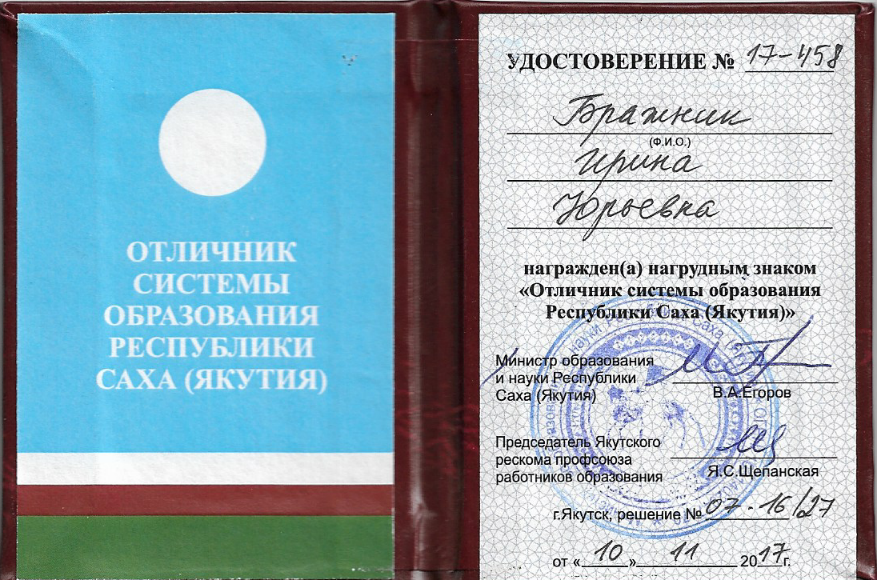 ОТЛИЧНИК
СИСТЕМЫ
ОБРАЗОВАНИЯ
РЕСПУБЛИКИ
САХА (ЯКУТИЯ)
УДОСТОВЕРЕНИЕ № 17-458
Бражник
(Ф.И.О.)
Ирина
Юрьевна
награжден(а) нагрудным знаком
«Отличник системы образования
Республики Саха (Якутия)»
Министр образования
и науки Республики
Саха (Якутия)
В.А.Егоров
Председатель Якутского
рескома профсоюза
работников образования
Я.С.Щепанская
г.Якутск, решение № 07-16/27
от «10» 11 2017г.